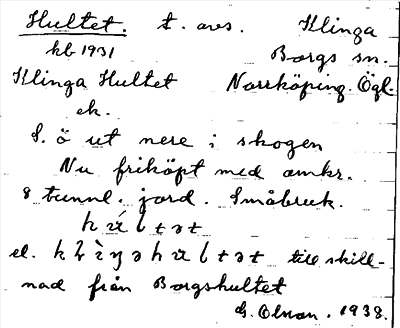 Hultet. t. avs. Klinga
kb 1931 Borgs sn.
Klinga Hultet Norrköping. Ögl.
ek.
S. ö ut nere i skogen
Nu friköpt med omkr.
8 tunnl. jord. Småbruk.
hʉ́ltət
el. till skill-
nad från Borgshultet
G. Olson. 1938.